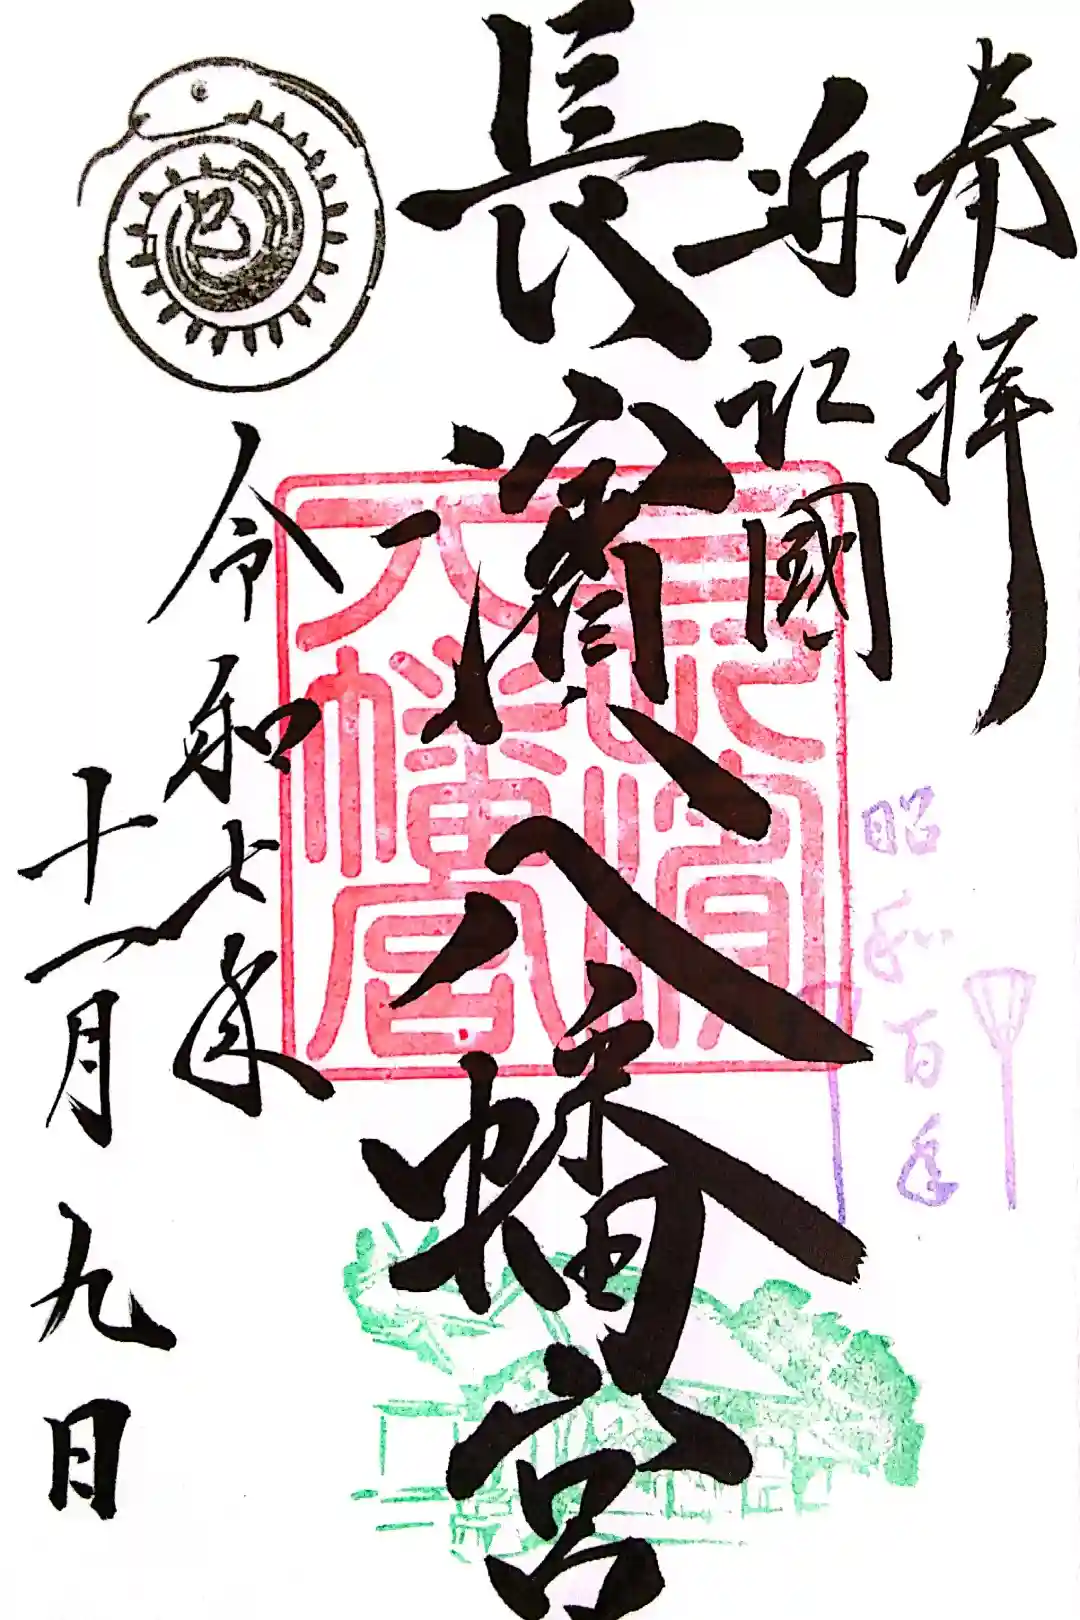 奉拝
近江國
長濱八幡宮
昭和百年
長濱
八幡宮
令和七年
十一月九日
巳